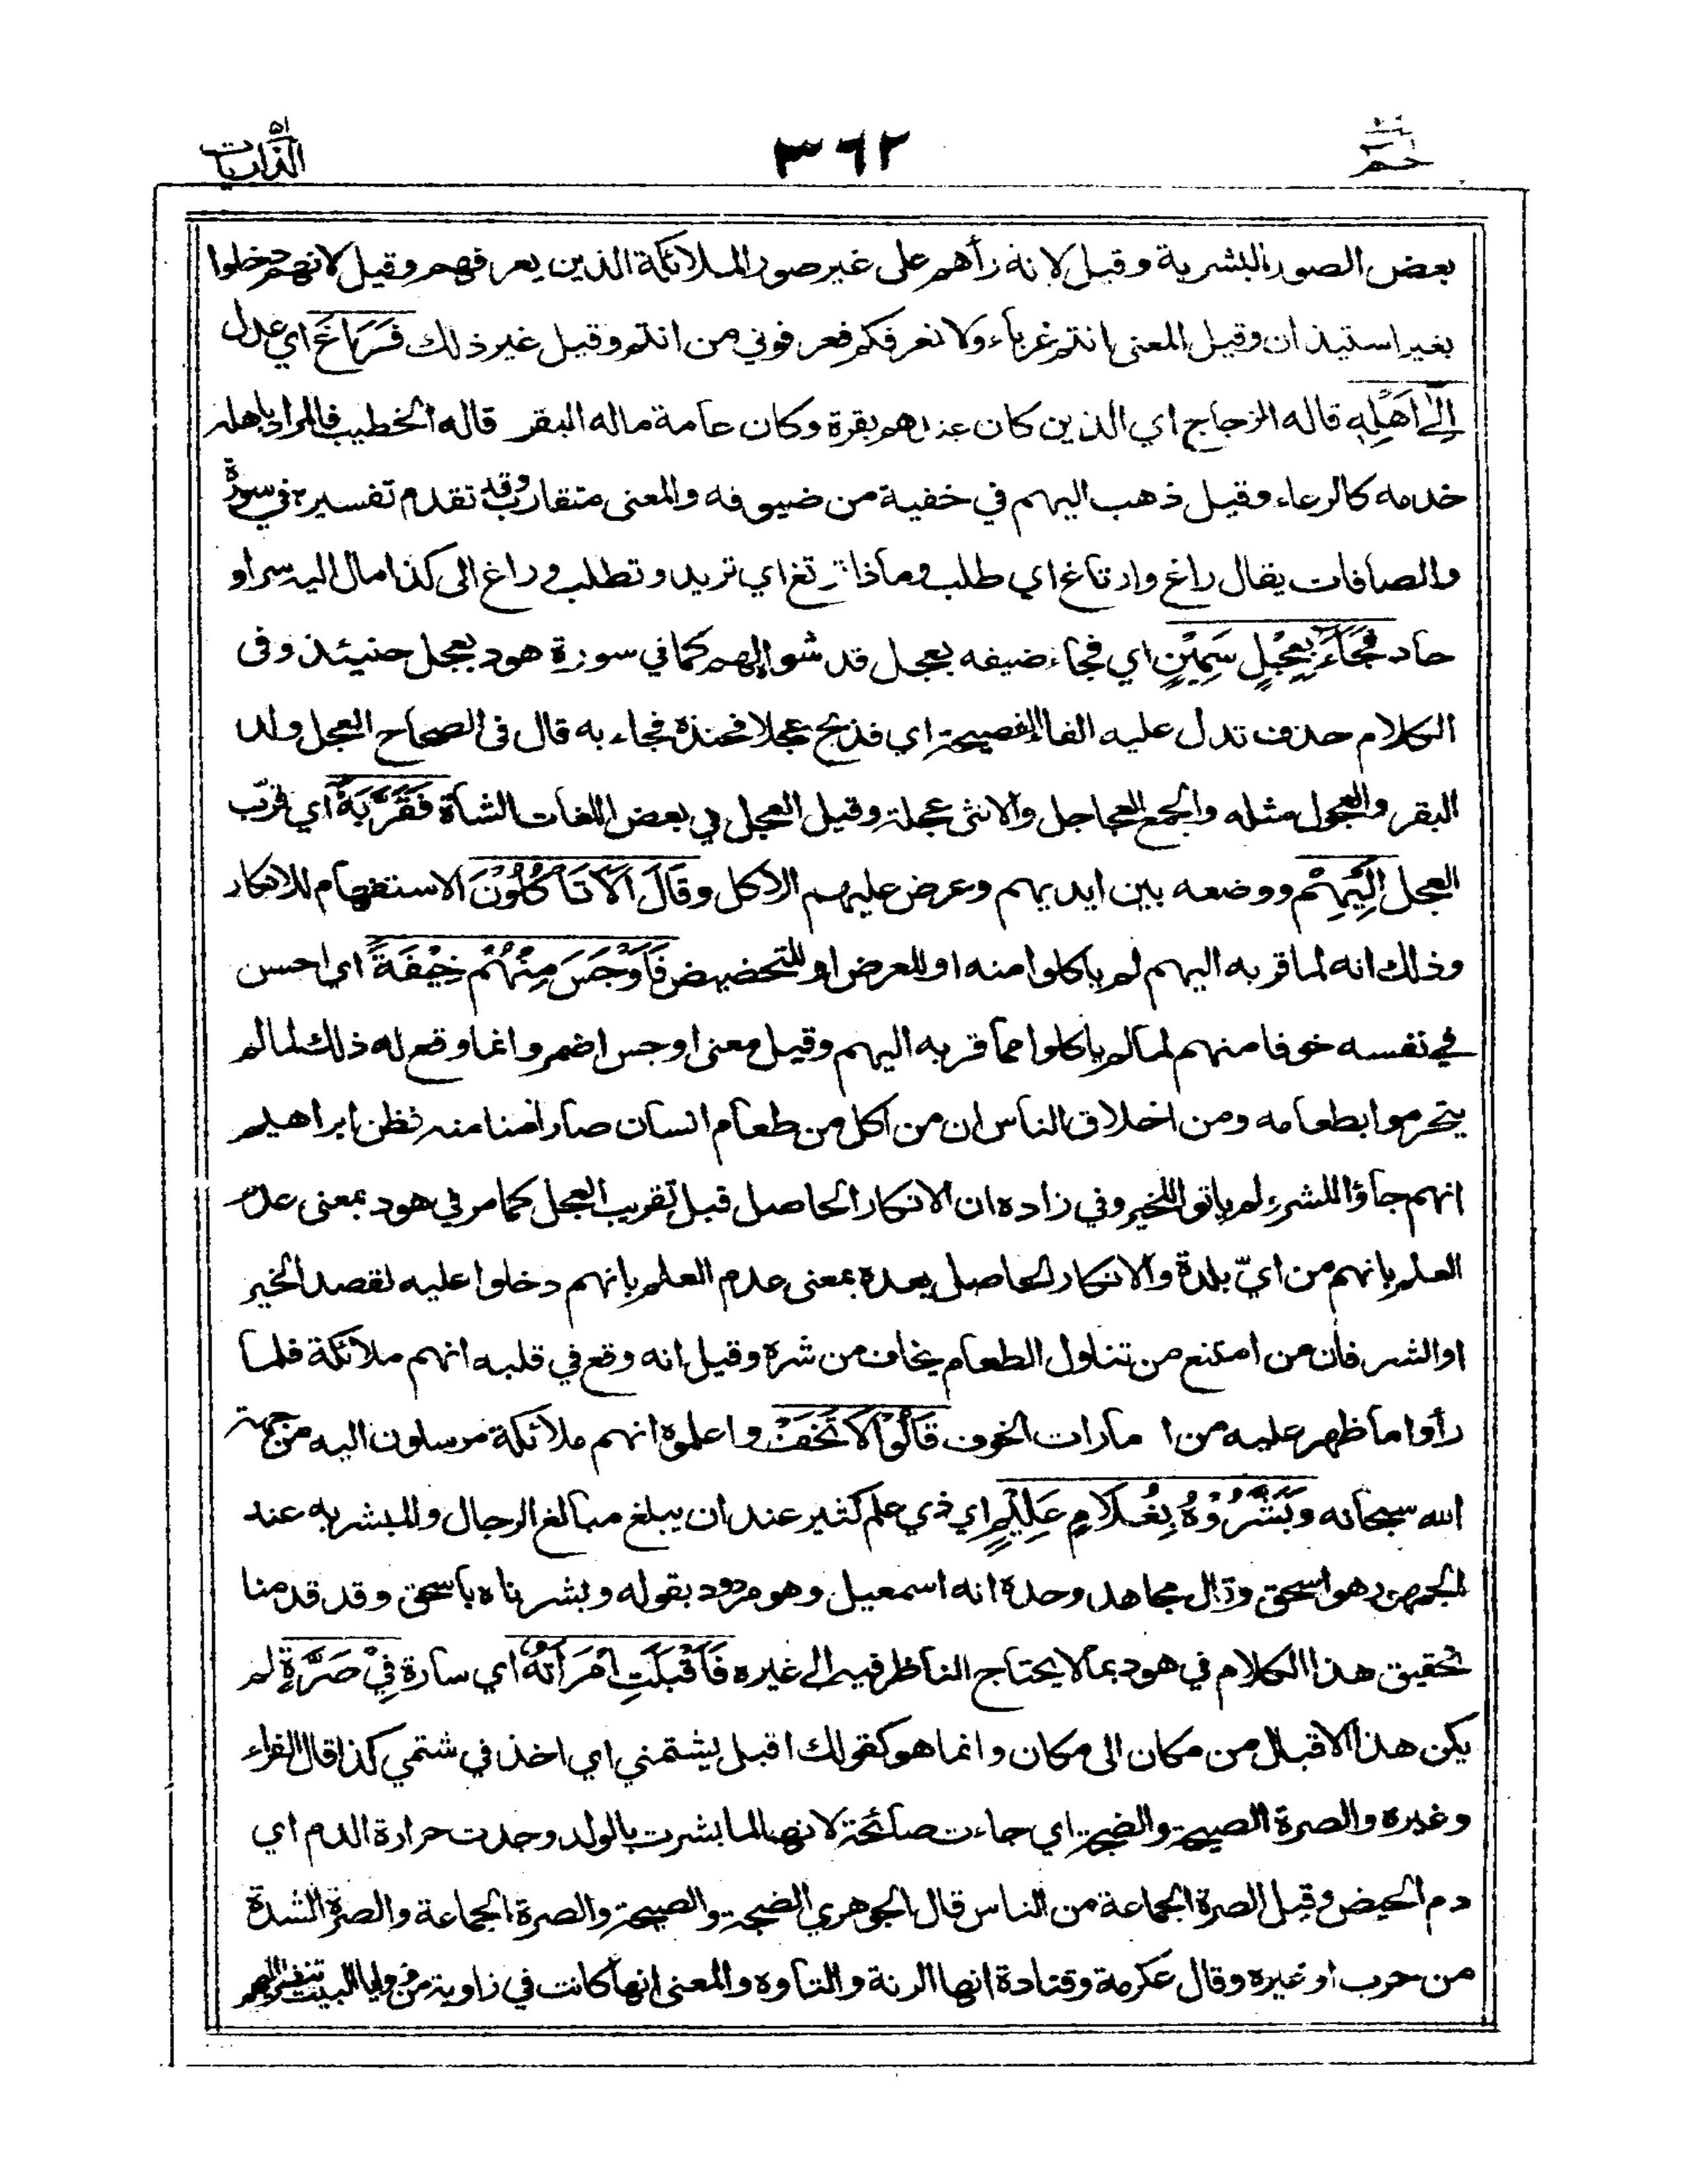 حم
٣٦٢
الذاريات ٥١
بعض الصور البشرية وقيل لانه رأهم على غير صور الملائكة الذين يعرفهم وقيل لانهم دخلوا
بغير استيذان وقيل المعنى انتم غرباء ولا نعرفكم فعرفوني من انتم وقيل غير ذلك فَرَاغَ اي عدل
إِلَىٰ اَهْلِهٖ قاله الزجاج اي الذين كان عندهم بقرة وكان عامة ماله البقر قاله الخطيب فالمراد باهله
خدمه كالرعاء وقيل ذهب اليهم في خفية من ضيوفه والمعنى متقارب وقد تقدم تفسيره في سورة
والصافات يقال راغ وارتاغ اي طلب وماذا ترتغ اي تريد وتطلب وراغ الى كذا مال اليه سرا و
حاد فَجَآءَ بِعِجْلٍ سَمِيْنٍ اي فجاء ضيفه بعجل قد شواه لهم كما في سورة هود بعجل حنيئذ وفى
الكلام حذف تدل عليه الفاء الفصيحة اي فذبح عجلا فحنذه فجاء به قال فى الصحاح العجل ولد
البقر والعجول مثله والجمع العجاجل والانثى عجلة وقيل العجل في بعض اللغات الشاة فَقَرَّبَهٗٓ اي قرّب
العجل اِلَيْهِمْ ووضعه بين ايديهم وعرض عليهم الاكل وقَالَ اَلَا تَأْكُلُوْنَ الاستفهام للانكار
وذلك انه لما قربه اليهم لم ياكلوا منه او للعرض او للتحضيض فَاَوْجَسَ مِنْهُمْ خِيْفَةً اي احسن
في نفسه خوفا منهم لما لم ياكلوا مما قربه اليهم وقيل معنى اوجس اضمر وانما وقع له ذلك لما لم
يتحرموا بطعامه ومن اخلاق الناس ان من اكل من طعام انسان صار آمنا منه فظن ابراهيم
انهم جاؤا للشر ولم ياتوا للخير وفي زاده ان الانكار الحاصل قبل تقريب العجل كما مر في هود بمعنى عدم
العلم بانهم من ايّ بلدة والانكار الحاصل بعده بمعنى عدم العلم بانهم دخلوا عليه لقصد الخير
او الشر فان من امتنع من تناول الطعام يخاف من شره وقيل انه وقع في قلبه انهم ملائكة فلما
رأوا ما ظهر عليه من ا مارات الخوف قَالُوْا لَا تَخَفْ واعلموه انهم ملائكة مرسلون اليه من جهة
الله سبحانه وَبَشَّرُوْهُ بِغُلَامٍ عَلِيْمٍ اي ذي علم كثير عند ان يبلغ مبالغ الرجال والمبشر به عند
الجمهور هو اسحق وقال مجاهد وحده انه اسمعيل وهو مردود بقوله وبشرناه باسحق وقد قدمنا
تحقيق هذا الكلام في هود بما لا يحتاج الناظر فيه الى غيره فَاَقْبَلَتِ امْرَأَتُهٗ اي سارة فِيْ صَرَّةٍ لم
يكن هذا الاقبال من مكان الى مكان وانما هو كقولك اقبل يشتمني اي اخذ في شتمي كذا قال الفراء
وغيره والصرة الصيحة والضجة اي جاءت صائحة لانها لما بشرت بالولد وجدت حرارة الدم اي
دم الحيض وقيل الصرة الجماعة من الناس قال الجوهري الضجة والصيحة والصرة الجماعة والصرة الشدة
من حرب او غيره وقال عكرمة وقتادة انها الرنة والتاوه والمعنى انها كانت في زاوية من زوايا البيت تنظر اليهم